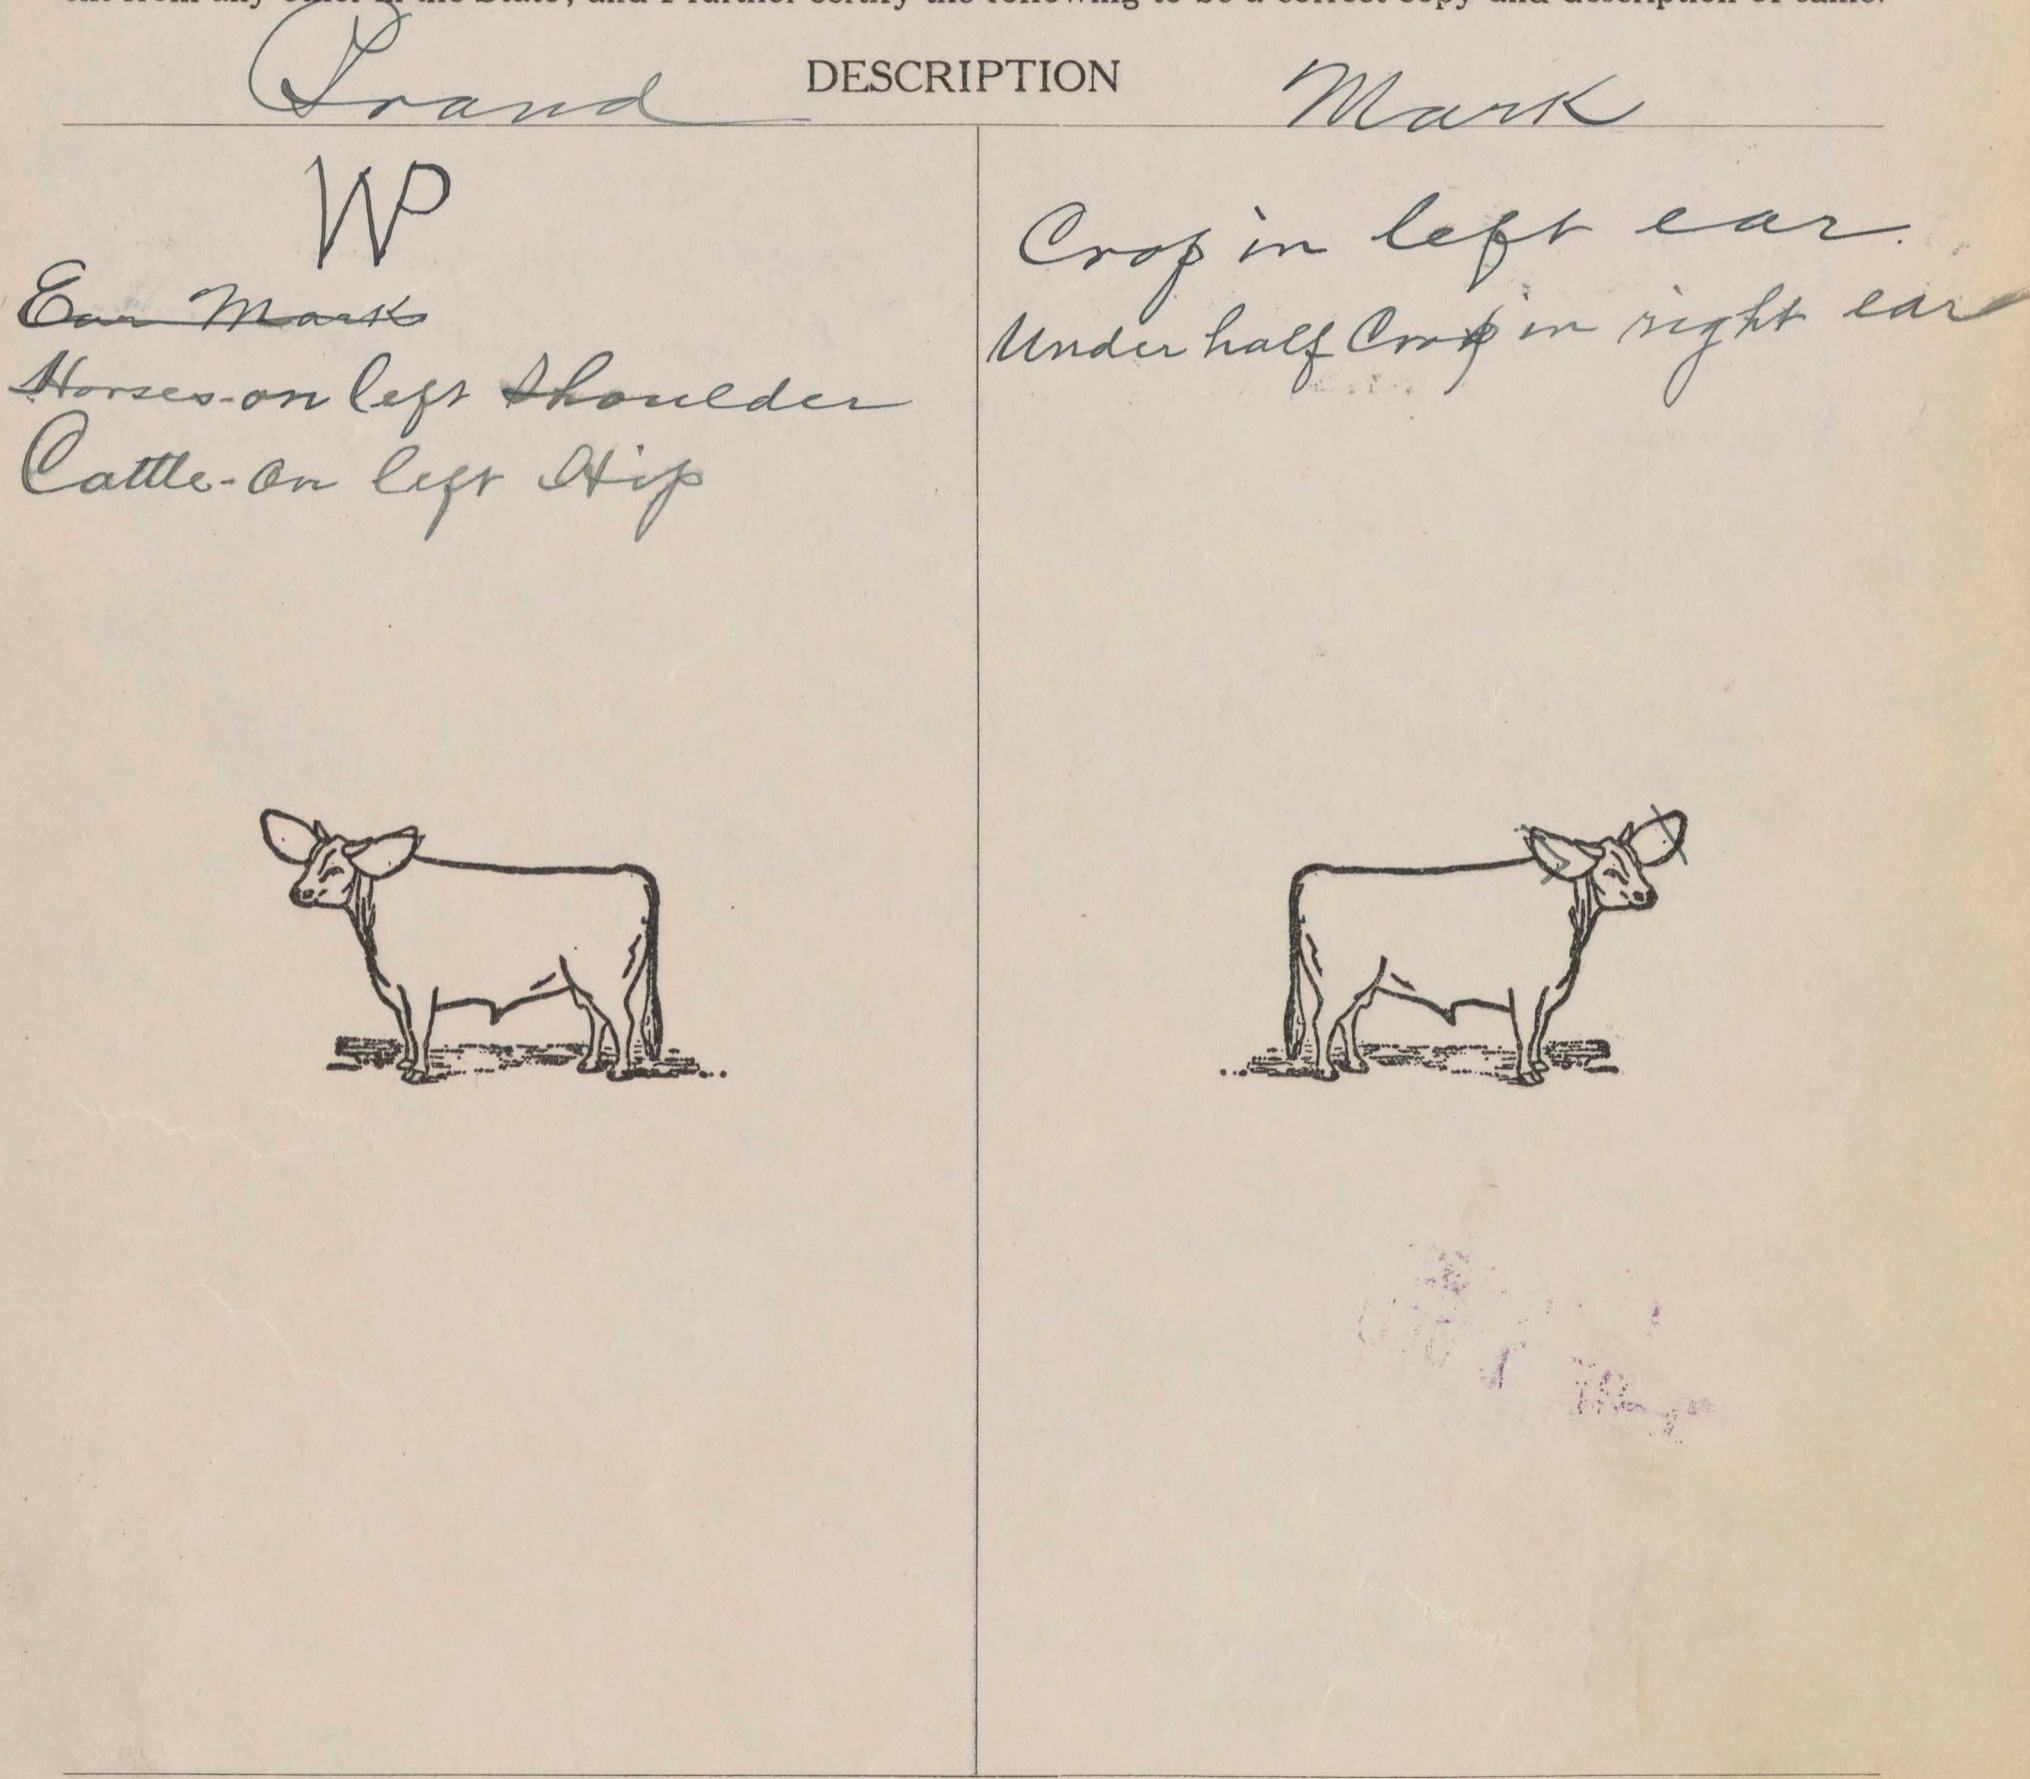 Brand DESCRIPTION Mark
WP
Ear Mark
Horses-on left shoulder
Cattle-on left Hip
Crop in left ear.
Under half Crop in right ear